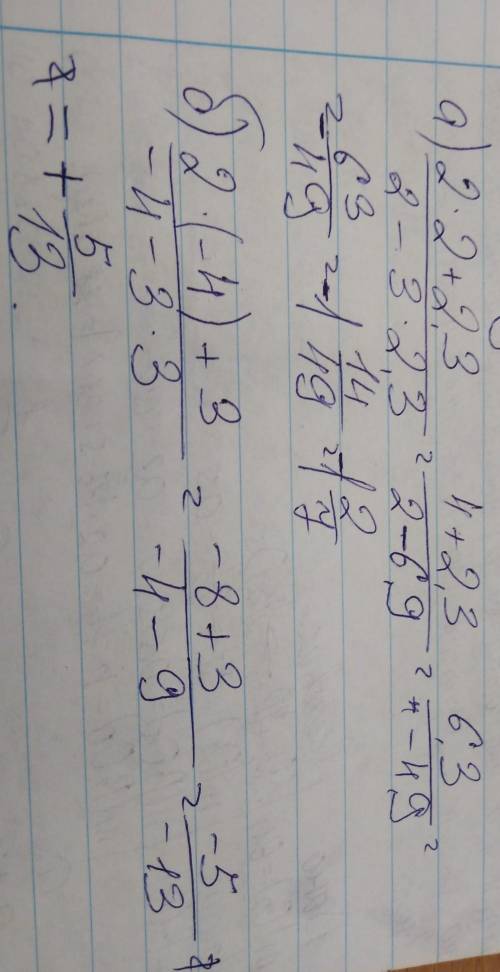 а) 2·2+2,3 / 2-3·2,3 = 4+2,3 / 2-6,9 = 6,3 / -4,9 =
= -63/49 = -1 14/49 = -1 2/7
б) 2·(-4)+3 / -4-3·3 = -8+3 / -4-9 = -5 / -13 =
= + 5/13.